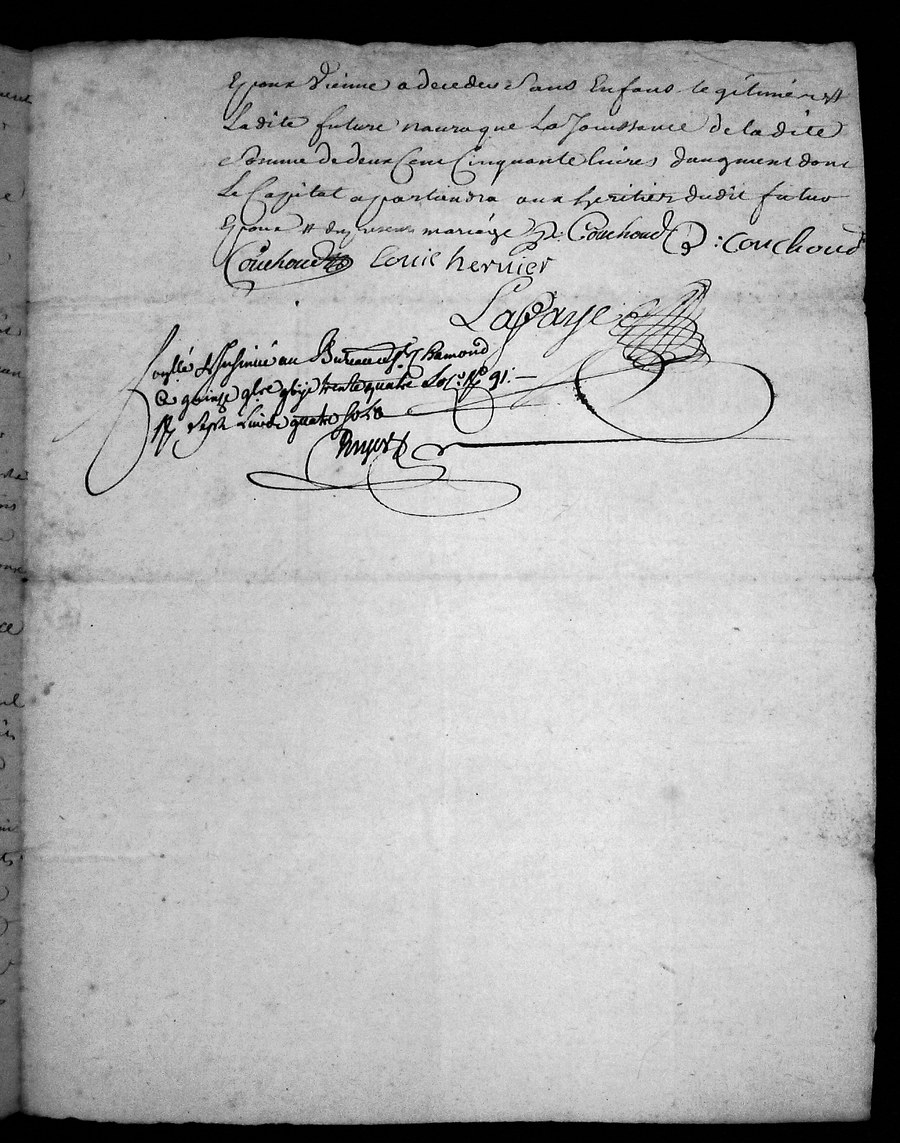 Epoux Vienne a decedes Sans Enfans legitimes #
Ladite future naura que La Jouissance de ladite
Somme de deux Cent Cinquante livres daugment dont
Le Capital apartiendra aux heritiers dudit futur
Epoux # du present mariage Couchoud : couchoud
Couchoud Louis hernier
Lafaye
&Insinué au Bureau de St Chamond
Le quinze trente quatre fo 91: —
sept Livres quatre sols